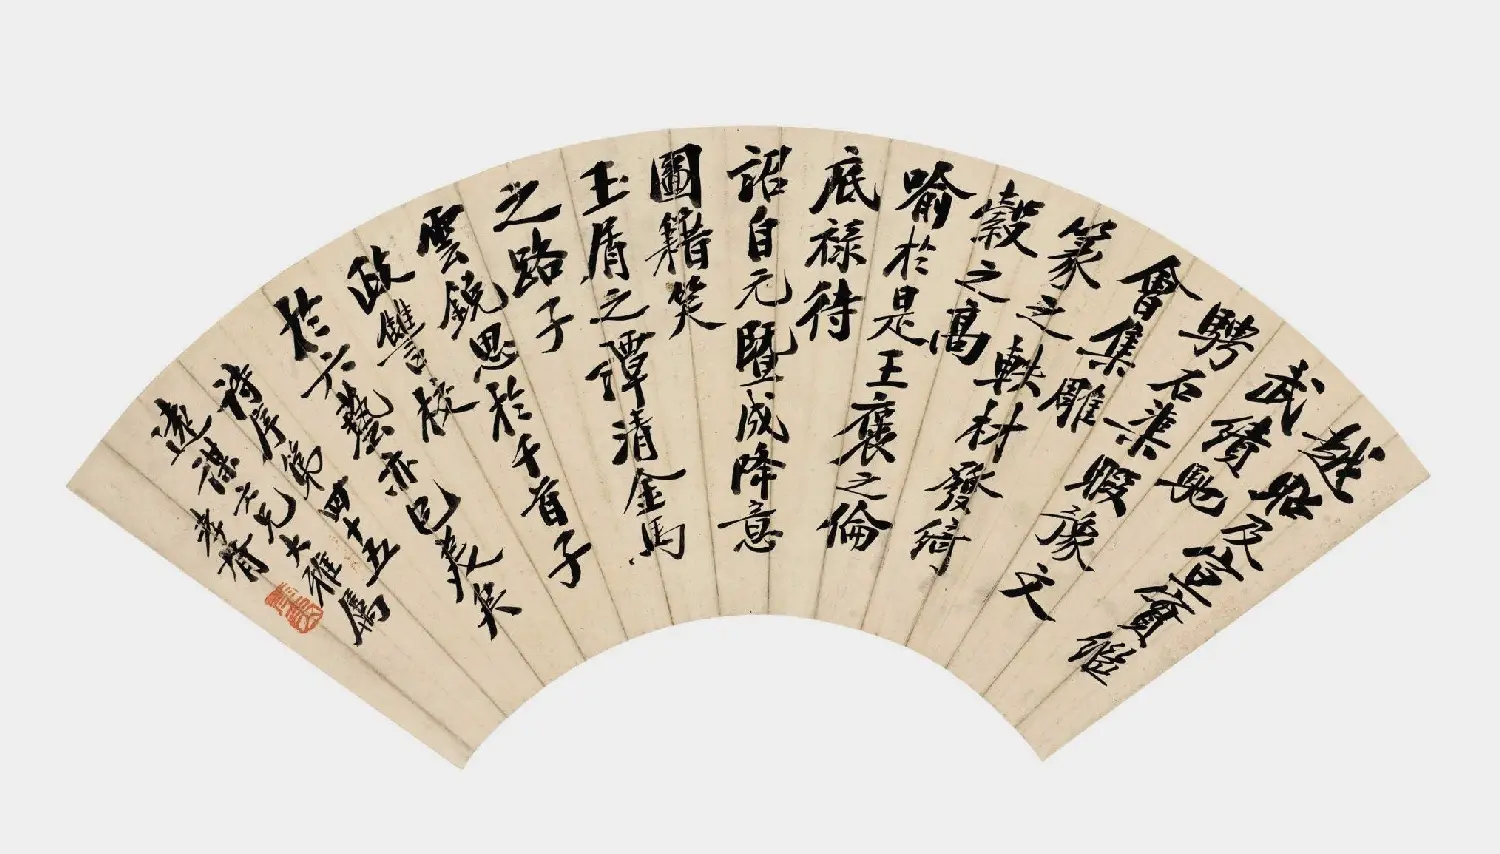 越昭及宣實繼
武績馳
騁石渠暇豫文
會集雕
篆之軼材發綺
縠之高
喻於是王襃之倫
底禄待
詔自元暨成降意
圖籍笑
玉屑之譚清金馬
之路子
雲銳思於千首子
政讎校
於六藝亦已美矣
詩序第四十五
遠謀仁兄大雅屬